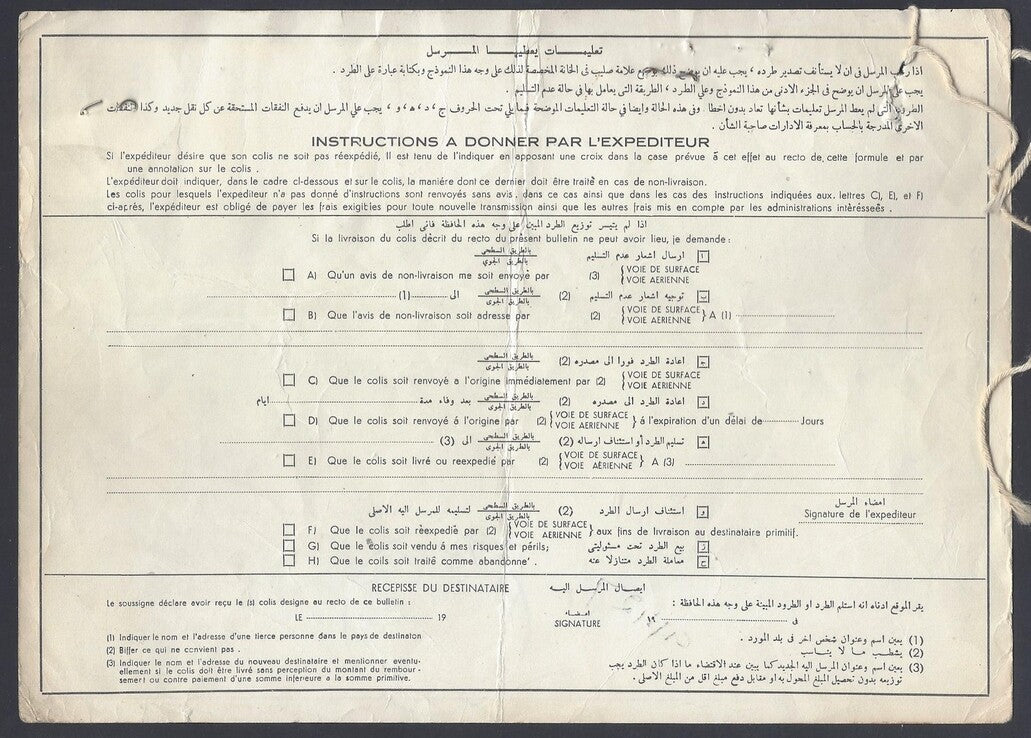 تعليمات يعطيها المرسل
اذا رغب المرسل فى ان لا يستأنف تصدير طرده ، يجب عليه ان يوضح ذلك بوضع علامة صليب فى الخانة المخصصة لذلك على وجه هذا النموذج وبكتابة عبارة على الطرد .
يجب على المرسل ان يوضح فى الجزء الادنى من هذا النموذج وعلى الطرد ، الطريقة التى يعامل بها فى حالة عدم التسليم .
الطرود التى لم يعط المرسل تعليمات بشأنها تعاد بدون اخطار وفى هذه الحالة وايضا فى حالة التعليمات الموضحة فيما يلى تحت الحروف ج ، د ، ه ، و ، يجب على المرسل ان يدفع النفقات المستحقة عن كل نقل جديد وكذا النفقات
الاخرى المدرجة بالحساب بمعرفة الادارات صاحبة الشأن .
INSTRUCTIONS A DONNER PAR L'EXPEDITEUR
Si l'expéditeur désire que son colis ne soit pas réexpédié, Il est tenu de l'indiquer en apposant une croix dans la case prévue à cet effet au recto de cette formule et par
une annotation sur le colis .
L'expéditeur doit indiquer, dans le cadre ci-dessous et sur le colis, la manière dont ce dernier doit être traité en cas de non-livraison.
Les colis pour lesquels l'expediteur n'a pas donné d'instructions sont renvoyés sans avis . dans ce cas ainsi que dans les cas des instructions indiquées aux. lettres C), E), et F)
ci-après, l'expéditeur est obligé de payer les frais exigibles pour toute nouvelle transmission ainsi que les autres frais mis en compte par les administrations intérèssées .
اذا لم يتيسر توزيع الطرد المبين على وجه هذه الحافظة فانى اطلب
Si la livraison du colis décrit du recto du présent bulletin ne peut avoir lieu, je demande :
أ ارسال اشعار عدم التسليم بالطريق السطحى بالطريق الجوى
A) Qu'un avis de non-livraison me soit envoyé par (3) { VOIE DE SURFACE VOIE AERIENNE
ب توجيه اشعار عدم التسليم (2) بالطريق السطحى بالطريق الجوى الى (1)
B) Que l'avis de non-livraison soit adresse par (2) { VOIE DE SURFACE VOIE AERIENNE } A (1)
ج اعادة الطرد فورا الى مصدره (2) بالطريق السطحى بالطريق الجوى
C) Que le colis soit renvoyé a l'origine immédiatement par (2) { VOIE DE SURFACE VOIE AERIENNE
د اعادة الطرد الى مصدره (2) بالطريق السطحى بالطريق الجوى بعد وفاء مدة ايام
D) Que le colis soit renvoyé á l'origine par (2) { VOIE DE SURFACE VOIE AERIENNE } á l'expiration d'un délai de Jours
ه تسليم الطرد أو استئناف ارساله (2) بالطريق السطحى بالطريق الجوى الى (3)
E) Que le colis soit livré ou reexpedié par (2) { VOIE DE SURFACE VOIE AERIENNE } A (3)
و استئناف ارسال الطرد (2) بالطريق السطحى بالطريق الجوى لتسليمه للمرسل اليه الأصلى
امضاء المرسل
Signature de l'expediteur
F) Que le colis soit réexpedié par (2) { VOIE DE SURFACE VOIE AERIENNE } aux fins de livraison au destinataire primitif.
G) Que le colis soit vendu á mes risques et périls; بيع الطرد تحت مسئوليتى ز
H) Que le coils soit traité comme abandonne' . معاملة الطرد متنازلا عنه ح
RECEPISSE DU DESTINATAIRE ايصال المرسل اليه
Le soussigne déclare avoir reçu le (s) colis designe au recto de ce bulletin :
يقر الموقع ادناه انه استلم الطرد او الطرود المبينة على وجه هذه الحافظة :
LE 19 امضاء SIGNATURE فى ١٩
(1) Indiquer le nom et l'adresse d'une tierce personne dans le pays de destinaton
(2) Biffer ce qui ne convient pas .
(3) Indiquer le nom et l'adresse du nouveau destinataire et mentionner eventu-
ellement si le colis doit être livré sans perception du montant du rembour-
sement ou contre paiement d'une somme infereure a la somme primitive.
(1) يعين اسم وعنوان شخص آخر فى بلد المورد .
(2) يشطب ما لا يناسب
(3) يعين اسم وعنوان المرسل اليه الجديد كما يبين عند الاقتضاء ما اذا كان الطرد يجب
توزيعه بدون تحصيل المبلغ المحول به او مقابل دفع مبلغ اقل من المبلغ الاصلى .